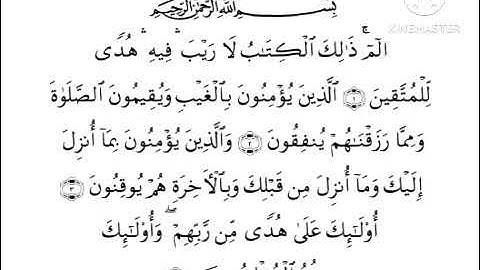 بِسْمِ اللَّهِ الرَّحْمَٰنِ الرَّحِيمِ
KINEMASTER
الٓمٓ ۚ ذَٰلِكَ ٱلْكِتَٰبُ لَا رَيْبَ ۛ فِيهِ ۛ هُدًى
لِّلْمُتَّقِينَ ۝١ ٱلَّذِينَ يُؤْمِنُونَ بِٱلْغَيْبِ وَيُقِيمُونَ ٱلصَّلَوٰةَ
وَمِمَّا رَزَقْنَٰهُمْ يُنفِقُونَ ۝٢ وَٱلَّذِينَ يُؤْمِنُونَ بِمَآ أُنزِلَ
إِلَيْكَ وَمَآ أُنزِلَ مِن قَبْلِكَ وَبِٱلْأَخِرَةِ هُمْ يُوقِنُونَ ۝٣
أُو۟لَٰٓئِكَ عَلَىٰ هُدًى مِّن رَّبِّهِمْ ۖ وَأُو۟لَٰٓئِكَ